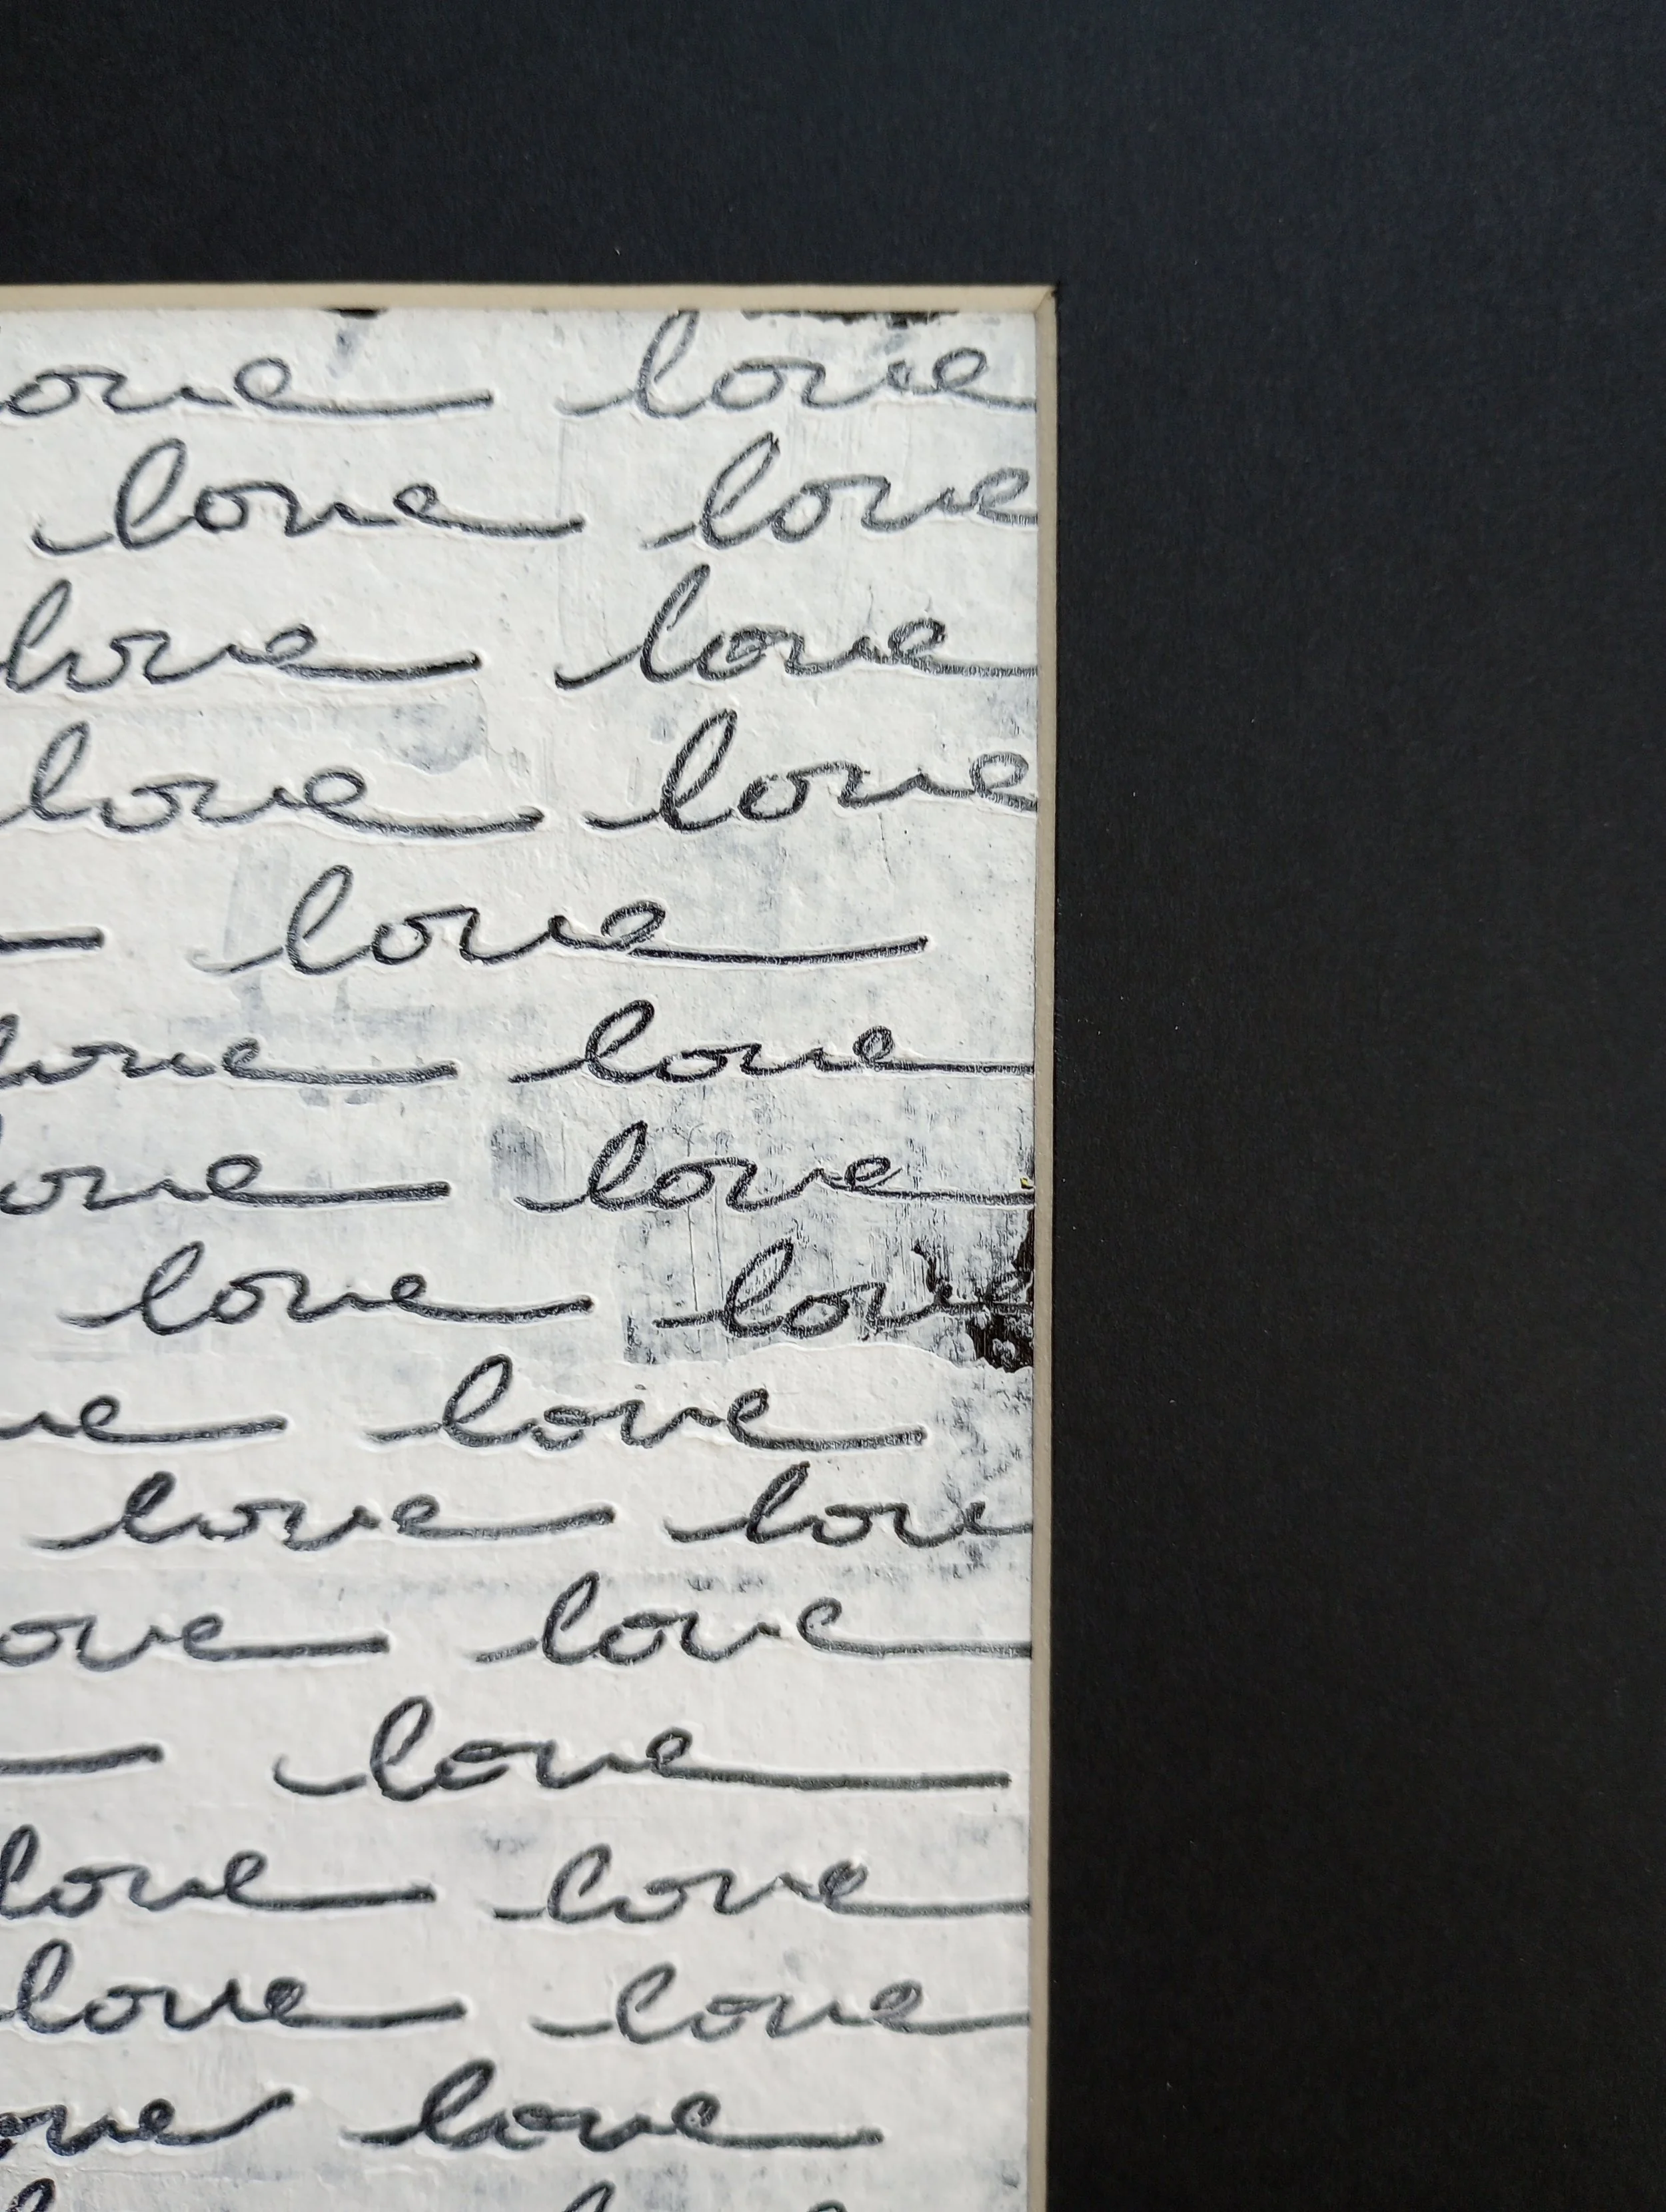 ove love
love love
love love
love love
love
love love
ove love
love love
ve love
love lov
ove love
love
love love
love love
ove love